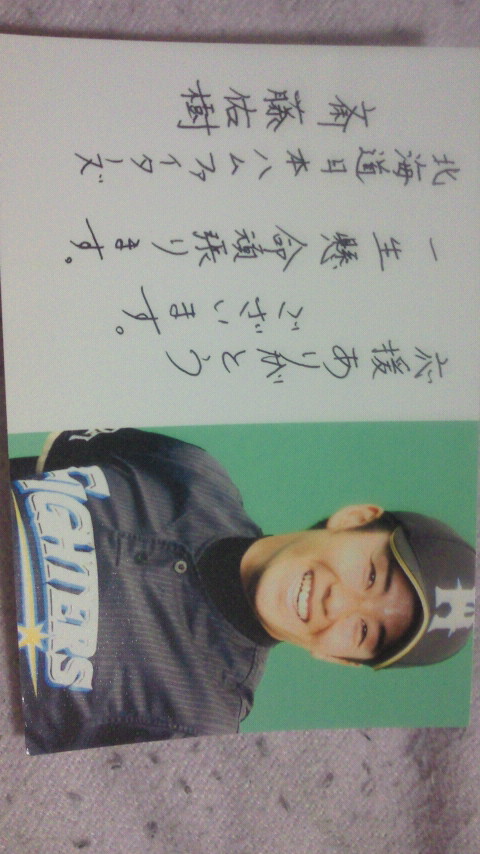 応援ありがとう
ございます。
一生懸命頑張ります。
北海道日本ハムファイターズ
斎藤佑樹
FIGHTERS